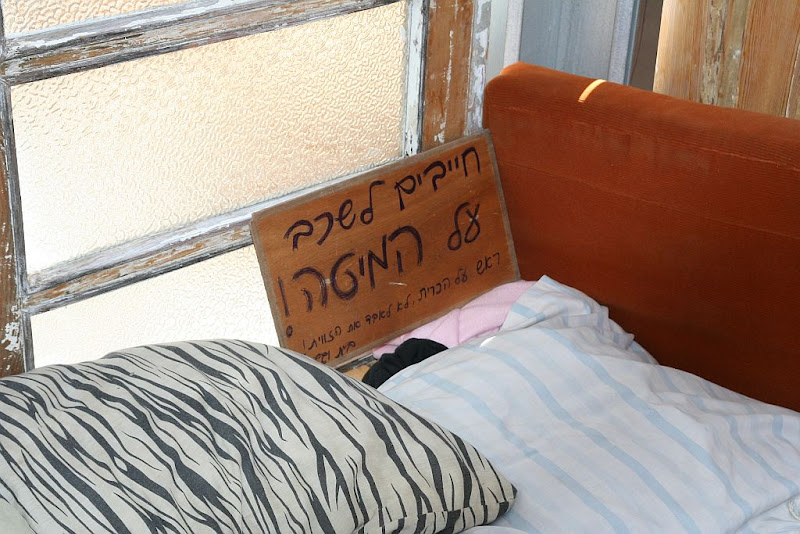 חייבים לשכב
על המיטה!
ראש על הכרית, לא לאבד את הזווית!